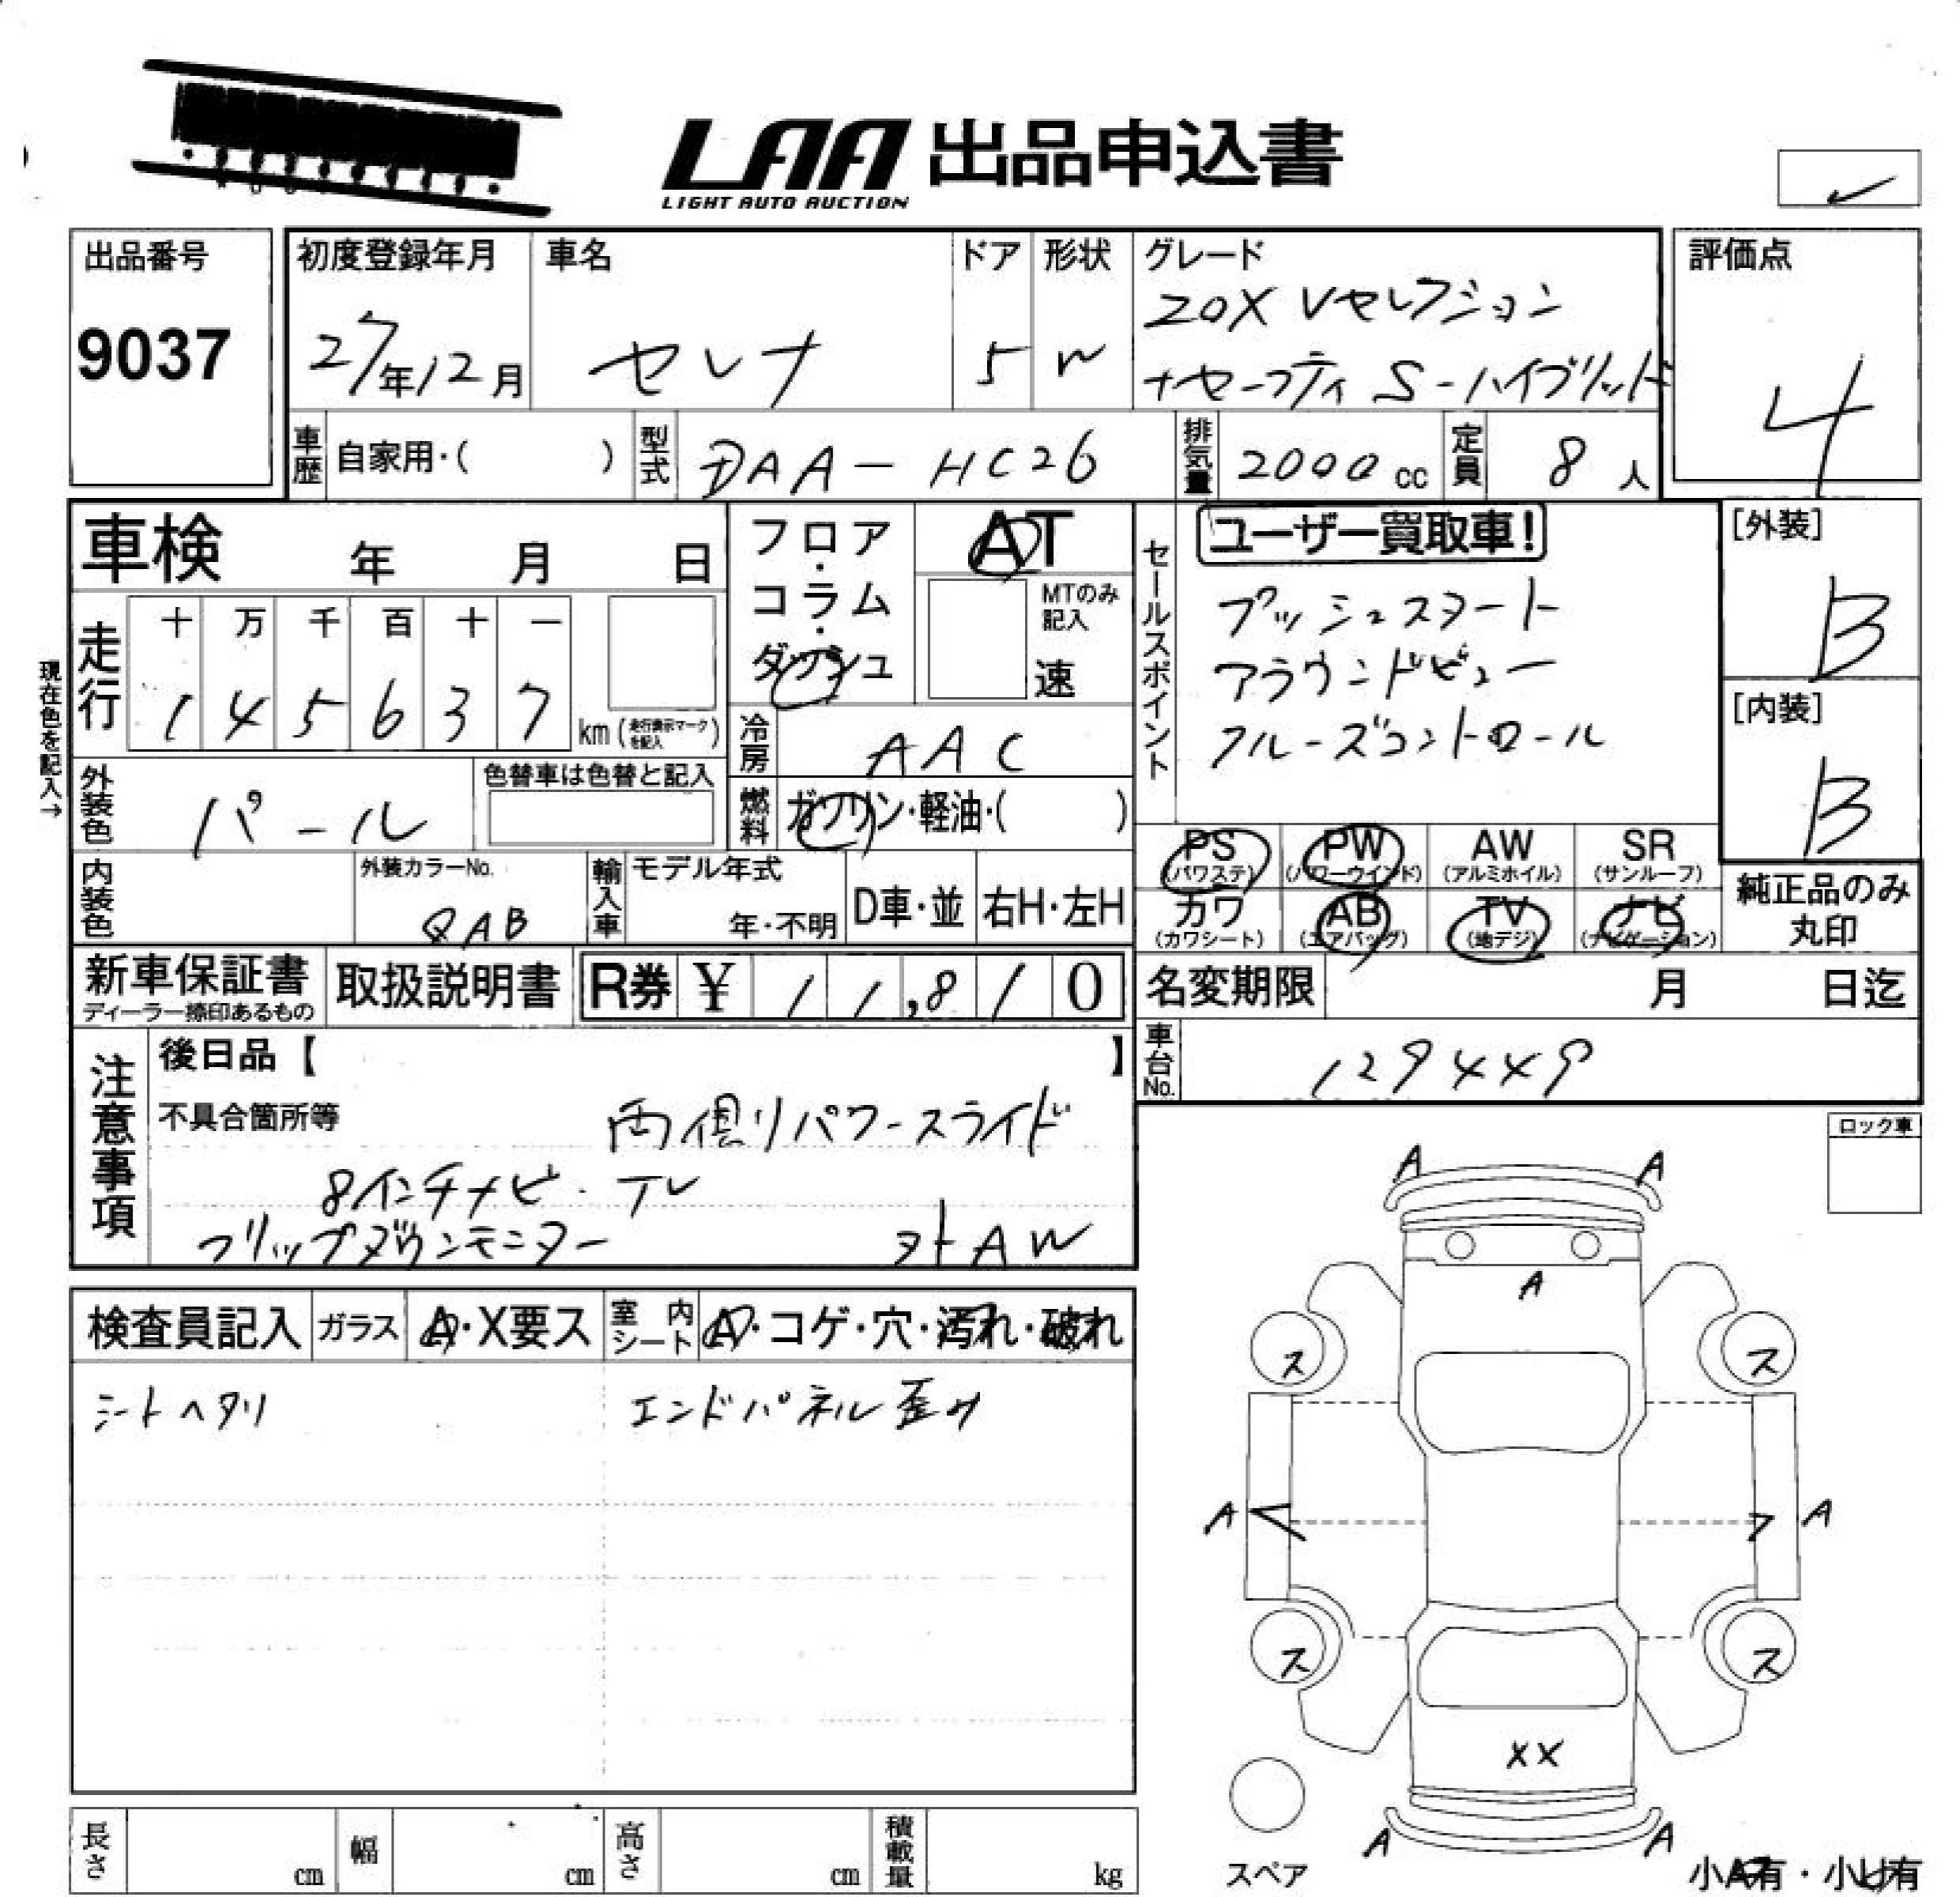 LAA 出品申込書
LIGHT AUTO AUCTION
出品番号
9037
初度登録年月
27年12月
車名
セレナ
ドア
5
形状
W
グレード
20X Vセレクション
+セーフティ S-ハイブリッド
評価点
4
車歴
自家用・( )
型式
DAA-HC26
排気量
2000 cc
定員
8 人
車検 年 月 日
フロア・コラム・ダッシュ
AT
MTのみ記入
速
セールスポイント
ユーザー買取車!
プッシュスタート
アラウンドビュー
クルーズコントロール
[外装]
B
[内装]
B
現在色を記入→
走行
十 万 千 百 十 一
1 4 5 6 3 7
km(走行表示マークを記入)
冷房
AAC
外装色
パール
色替車は色替と記入
燃料
ガソリン・軽油・( )
PS
(パワステ)
PW
(パワーウインド)
AW
(アルミホイル)
SR
(サンルーフ)
カワ
(カワシート)
AB
(エアバッグ)
TV
(地デジ)
ナビ
(ナビゲーション)
純正品のみ
丸印
内装色
外装カラーNo.
QAB
輸入車
モデル年式
年・不明
D車・並
右H・左H
新車保証書
ディーラー捺印あるもの
取扱説明書
R券 ¥ 11,810
名変期限 月 日迄
車台No.
129449
注意事項
後日品【 】
不具合箇所等
両側パワースライド
8インチナビ・TV
フリップダウンモニター
社外AW
ロック車
検査員記入
ガラス
A・X要ス
室内シート
A・コゲ・穴・汚れ・破れ
シートヘタリ
エンドパネル歪み
A A
A
ス ス
A A
ス ス
XX
A A
スペア
小A有・小U有
長さ cm
幅 cm
高さ cm
積載量 kg